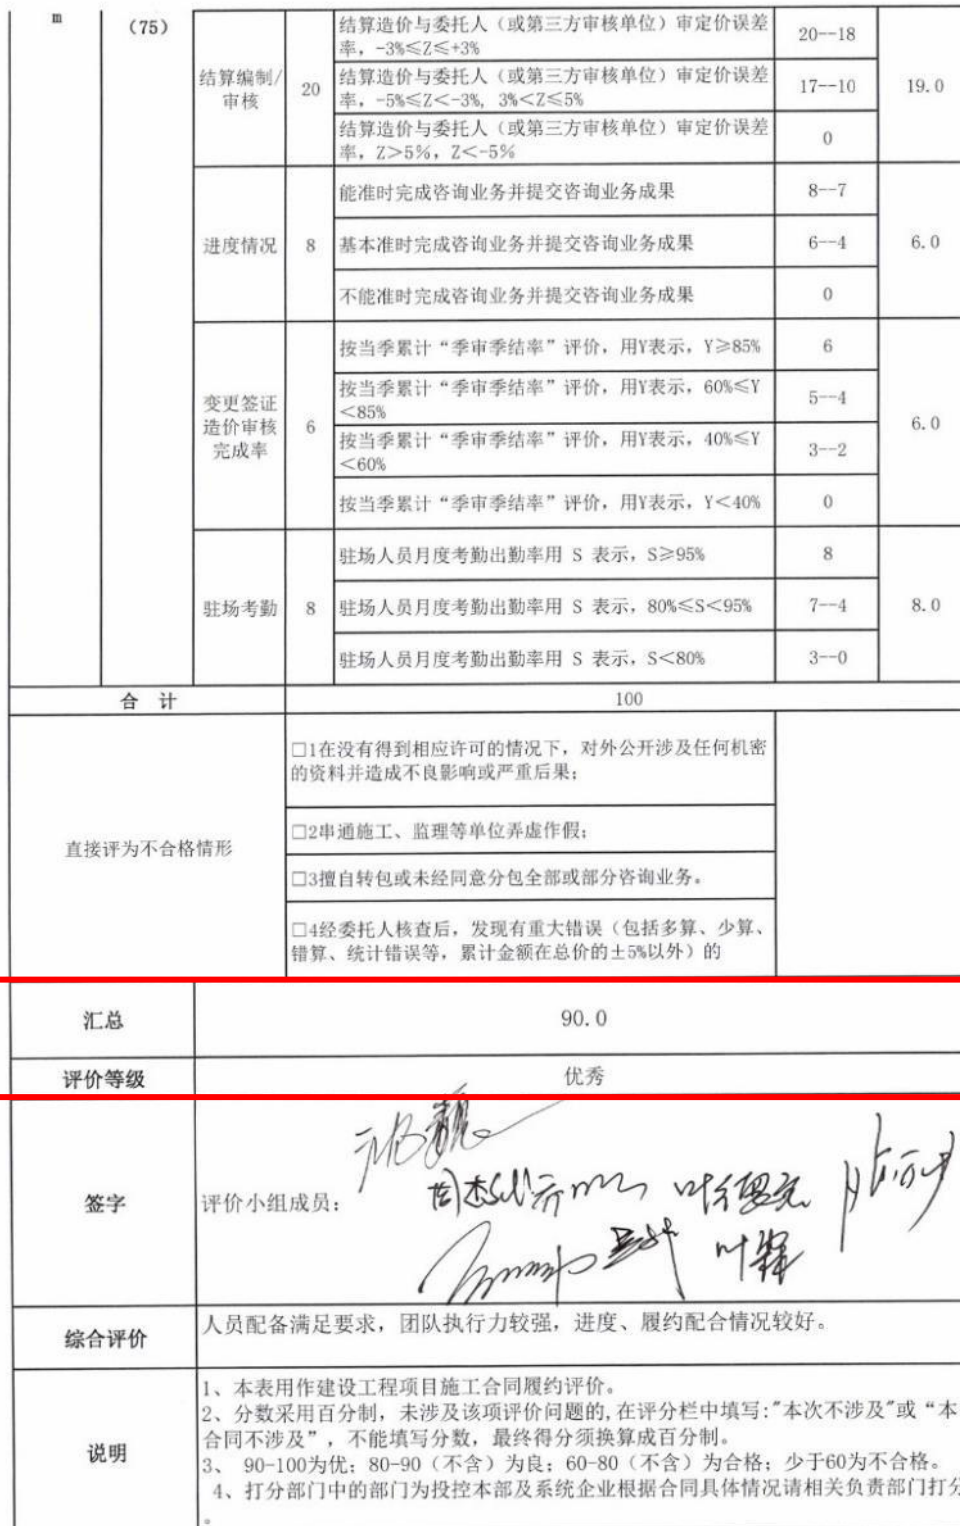 m
（75）
结算编制/
审核
20
结算造价与委托人（或第三方审核单位）审定价误差
率，-3%≤Z≤+3%
20--18
结算造价与委托人（或第三方审核单位）审定价误差
率，-5%≤Z＜-3%，3%＜Z≤5%
17--10
19.0
结算造价与委托人（或第三方审核单位）审定价误差
率，Z＞5%，Z＜-5%
0
进度情况
8
能准时完成咨询业务并提交咨询业务成果
8--7
基本准时完成咨询业务并提交咨询业务成果
6--4
6.0
不能准时完成咨询业务并提交咨询业务成果
0
变更签证
造价审核
完成率
6
按当季累计“季审季结率”评价，用Y表示，Y≥85%
6
按当季累计“季审季结率”评价，用Y表示，60%≤Y
＜85%
5--4
6.0
按当季累计“季审季结率”评价，用Y表示，40%≤Y
＜60%
3--2
按当季累计“季审季结率”评价，用Y表示，Y＜40%
0
驻场考勤
8
驻场人员月度考勤出勤率用 S 表示，S≥95%
8
驻场人员月度考勤出勤率用 S 表示，80%≤S＜95%
7--4
8.0
驻场人员月度考勤出勤率用 S 表示，S＜80%
3--0
合 计
100
直接评为不合格情形
□1在没有得到相应许可的情况下，对外公开涉及任何机密
的资料并造成不良影响或严重后果；
□2串通施工、监理等单位弄虚作假；
□3擅自转包或未经同意分包全部或部分咨询业务。
□4经委托人核查后，发现有重大错误（包括多算、少算、
错算、统计错误等，累计金额在总价的±5%以外）的
汇总
90.0
评价等级
优秀
签字
评价小组成员：
综合评价
人员配备满足要求，团队执行力较强，进度、履约配合情况较好。
说明
1、本表用作建设工程项目施工合同履约评价。
2、分数采用百分制，未涉及该项评价问题的,在评分栏中填写:"本次不涉及"或“本
合同不涉及”，不能填写分数，最终得分须换算成百分制。
3、 90-100为优；80-90（不含）为良；60-80（不含）为合格；少于60为不合格。
4、打分部门中的部门为投控本部及系统企业根据合同具体情况请相关负责部门打分
。